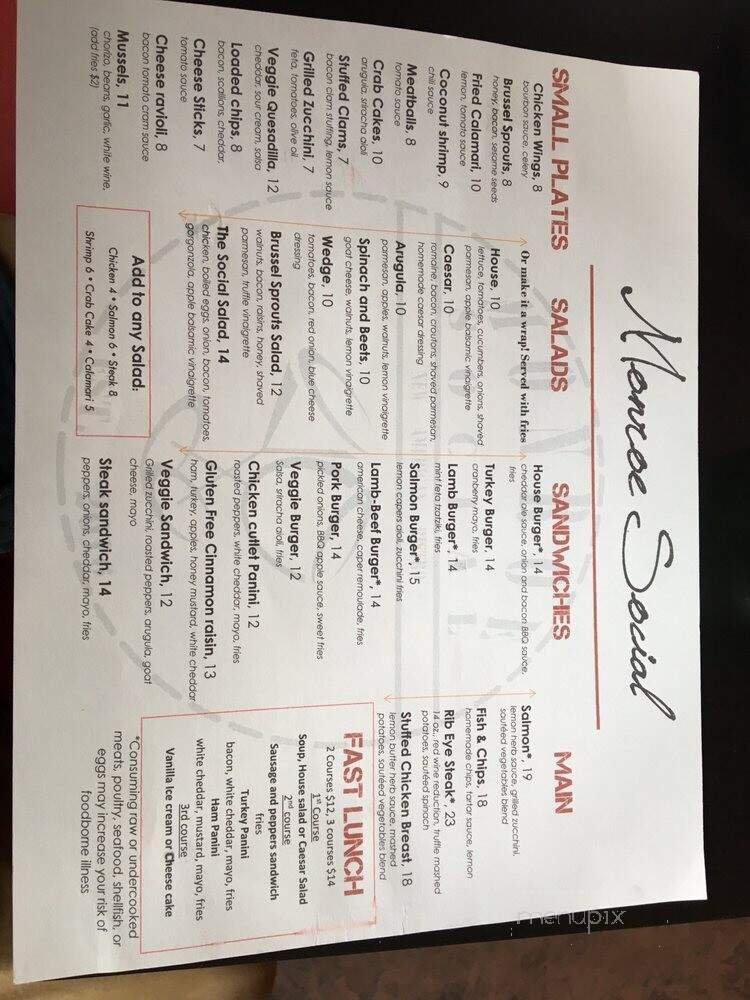 Monroe Social
SMALL PLATES
Chicken Wings, 8
bourbon sauce, celery
Brussel Sprouts, 8
honey, bacon, sesame seeds
Fried Calamari, 10
lemon, tomato sauce
Coconut shrimp, 9
chili sauce
Meatballs, 8
tomato sauce
Crab Cakes, 10
arugula, siracha aioli
Stuffed Clams, 7
bacon clam stuffing, lemon sauce
Grilled Zucchini, 7
feta, tomatoes, olive oil
Veggie Quesadilla, 12
cheddar, sour cream, salsa
Loaded chips, 8
bacon, scallions, cheddar,
Cheese Sticks, 7
tomato sauce
Cheese ravioli, 8
bacon tomato cram sauce
Mussels, 11
chorizo, beans, garlic, white wine,
(add fries $2)
SALADS
Or make it a wrap! Served with fries
House, 10
lettuce, tomatoes, cucumbers, onions, shaved
parmesan, apple balsamic vinaigrette
Caesar, 10
romaine, bacon, croutons, shaved parmesan,
homemade caesar dressing
Arugula, 10
parmesan, apples, walnuts, lemon vinaigrette
Spinach and Beets, 10
goat cheese, walnuts, lemon vinaigrette
Wedge, 10
tomatoes, bacon, red onion, blue cheese
dressing
Brussel Sprouts Salad, 12
walnuts, bacon, raisins, honey, shaved
parmesan, truffle vinaigrette
The Social Salad, 14
chicken, boiled eggs, onion, bacon, tomatoes,
gorgonzola, apple balsamic vinaigrette
Add to any Salad:
Chicken 4 • Salmon 6 • Steak 8
Shrimp 6 • Crab Cake 4 • Calamari 5
SANDWICHES
House Burger*, 14
cheddar ale sauce, onion and bacon BBQ sauce,
fries
Turkey Burger, 14
cranberry mayo, fries
Lamb Burger*, 14
mint feta tzatziki, fries
Salmon Burger*, 15
lemon capers aioli, zucchini fries
Lamb-Beef Burger*, 14
american cheese, caper remoulade, fries
Pork Burger, 14
pickled onions, BBQ apple sauce, sweet fries
Veggie Burger, 12
Salsa, siracha aioli, fries
Chicken cutlet Panini, 12
roasted peppers, white cheddar, mayo, fries
Gluten Free Cinnamon raisin, 13
ham, turkey, apples, honey mustard, white cheddar
Veggie Sandwich, 12
Grilled zucchini, roasted peppers, arugula, goat
cheese, mayo
Steak sandwich, 14
peppers, onions, cheddar, mayo, fries
MAIN
Salmon*, 19
lemon herb sauce, grilled zucchini,
sautéed vegetables blend
Fish & Chips, 18
homemade chips, tartar sauce, lemon
Rib Eye Steak*, 23
14 oz., red wine reduction, truffle mashed
potatoes, sautéed spinach
Stuffed Chicken Breast, 18
lemon butter herb sauce, mashed
potatoes, sautéed vegetables blend
FAST LUNCH
2 Courses $12, 3 courses $14
1st Course
Soup, House salad or Caesar Salad
2nd course
Sausage and peppers sandwich
fries
Turkey Panini
bacon, white cheddar, mayo, fries
Ham Panini
white cheddar, mustard, mayo, fries
3rd course
Vanilla Ice cream or Cheese cake
*Consuming raw or undercooked
meats, poultry, seafood, shellfish, or
eggs may increase your risk of
foodborne illness
menupix